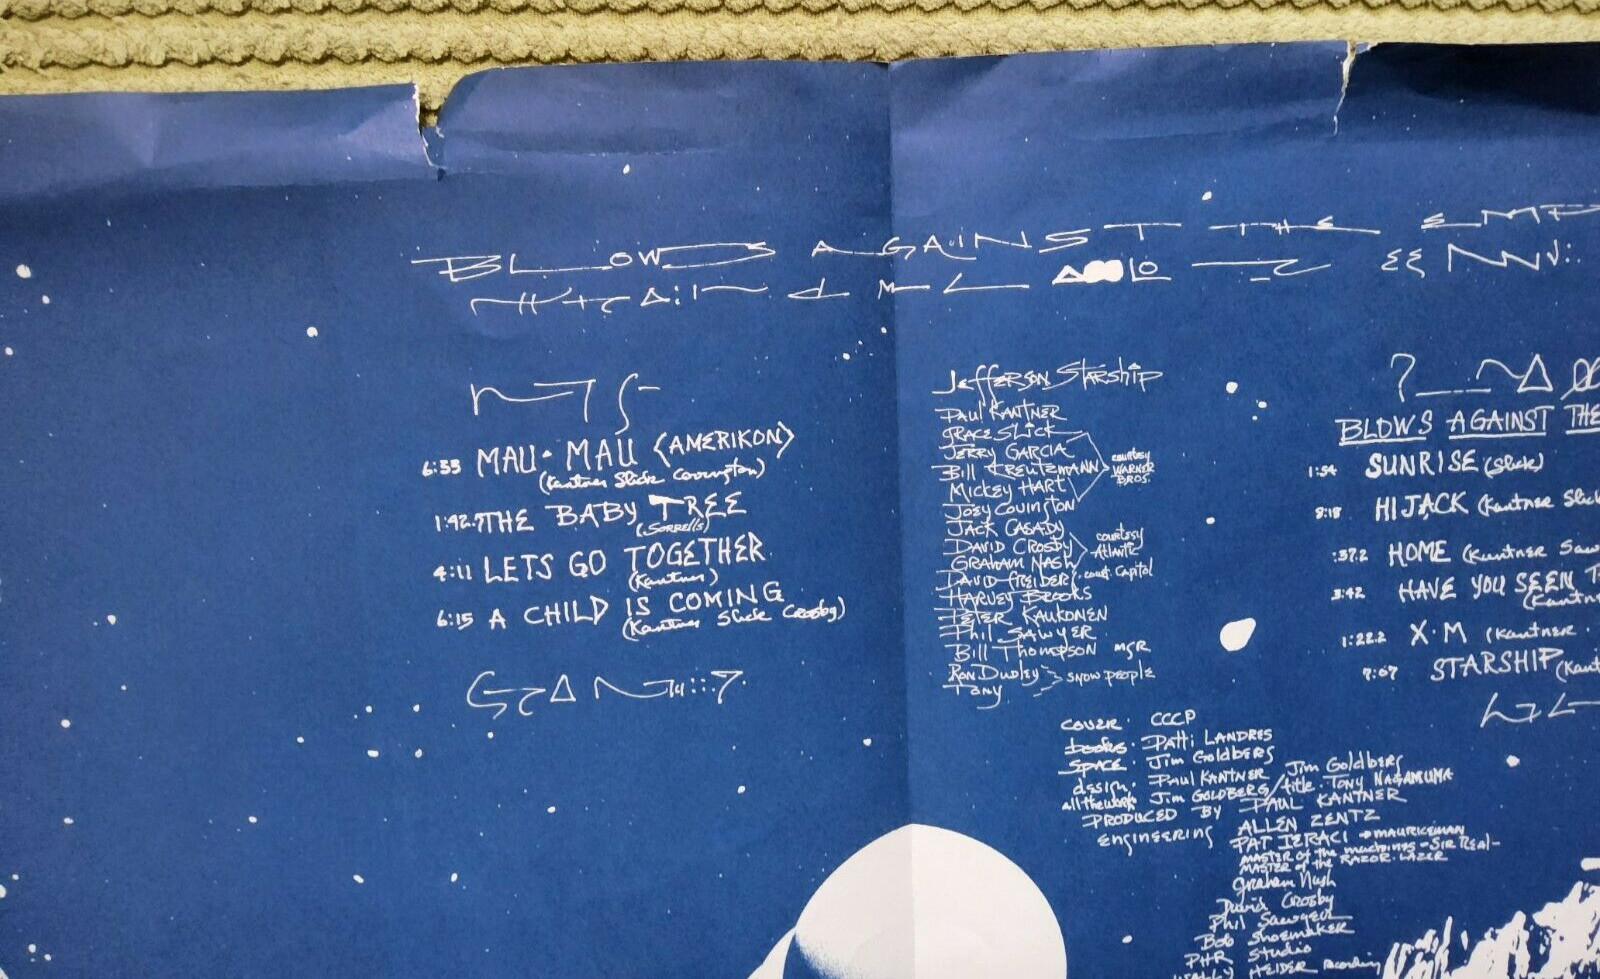 BLOWS AGAINST THE EMP
MAU·MAU (AMERIKON)
6:33
(Kantner Slick Covington)
1:42. THE BABY TREE
(Sorrells)
4:11 LETS GO TOGETHER
(Kantner)
6:15 A CHILD IS COMING
(Kantner Slick Crosby)
Jefferson Starship
PAUL KANTNER
GRACE SLICK
JERRY GARCIA
Bill KREUTZMANN
MICKEY HART
courtesy
WARNER
BROS.
JOEY COVINGTON
JACK CASADY
DAVID CROSBY
GRAHAM NASH
courtesy
Atlantic
DAVID FREIBERG court. Capitol
HARVEY BROOKS
PETER KAUKONEN
Phil SAWYER
Bill THOMPSON MGR
RON DUDLEY
Tony
SNOW PEOPLE
COVER· CCCP
books· Patti LANDRES
SPACE· Jim Goldberg
design· PAUL KANTNER / Jim Goldberg
all the work Jim GOLDBERG / title· TONY NAGAMUMA
PRODUCED BY PAUL KANTNER
engineering ALLEN ZENTZ
PAT IERACI MAURICEMAN
MASTER of the machines - Sir Real-
MASTER of the RAZOR·LAZER
Graham Nash
David Crosby
Phil Sawyer
Bob Shoemaker
PHR Studio
WALLY HEIDER recording
BLOWS AGAINST THE
1:54 SUNRISE (Slick)
8:18 HIJACK (Kantner Slick
:37.2 HOME (Kantner Saw
3:42 HAVE YOU SEEN T
(Kantn
1:22.2 X·M (Kantner·
7:07 STARSHIP (Kant